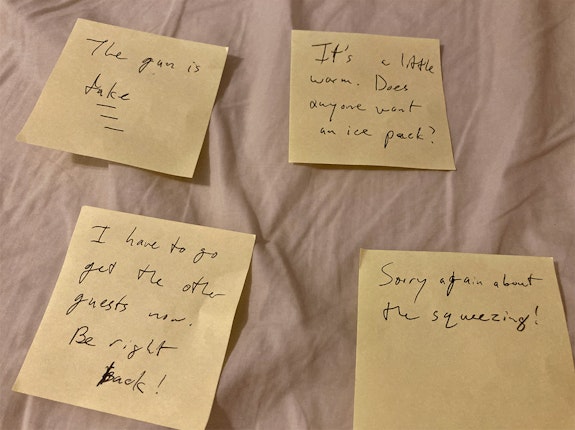 The gun is
fake
It's a little
warm. Does
anyone want
an ice pack?
I have to go
get the other
guests now.
Be right
back!
Sorry again about
the squeezing!